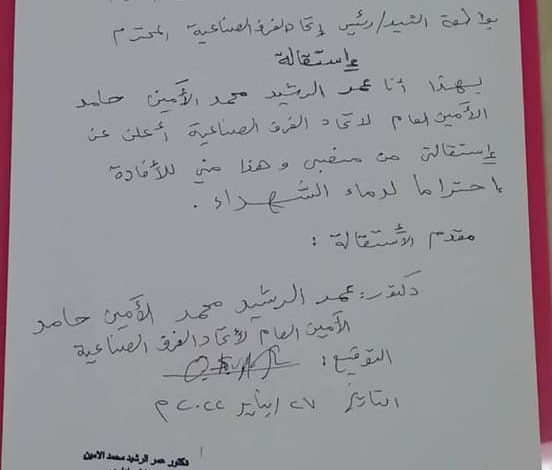 بواسطة السيد/رئيس إتحاد الغرف الصناعية المحترم
إستقالة
بهذا أنا عمر الرشيد محمد الأمين حامد
الأمين العام لاتحاد الغرف الصناعية أعلن عن
إستقالتي من منصبي وهذا مني للأفادة
إحتراما لدماء الشهداء .
مقدم الأستقالة :
دكتور: عمر الرشيد محمد الأمين حامد
الأمين العام لأتحاد الغرف الصناعية
التوقيع :
التاريخ ٢٧ يناير ٢٠٢٢م
دكتور عمر الرشيد محمد الامين